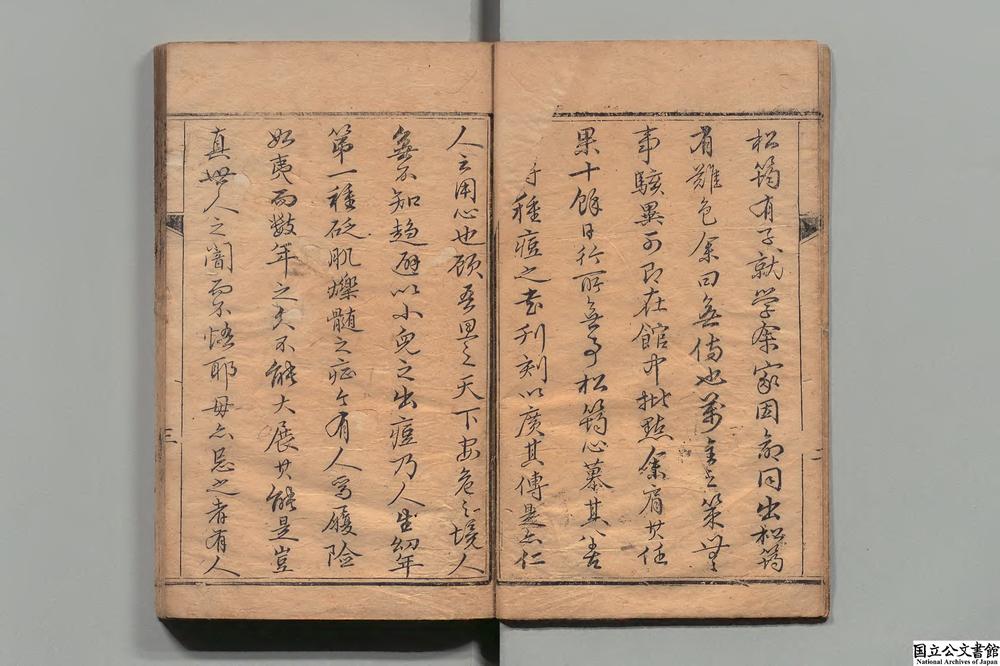 松筠有子就学余家因命同出松筠
有難色余曰無傷也萬全之策世之
事駭異可即在館中批點余肩其任
果十餘日行所無事松筠心慕其善
手種痘之書刊刻以廣其傳是亦仁
人之用心也顧吾思之天下安危之境人
無不知趨避以小兒之出痘乃人生幼年
第一種砭肌爍髓之症今有人焉履險
如夷而數年之久不能大展其能是豈
真世人之闇而不悟耶毋亦忌之者有人
三
国立公文書館
National Archives of Japan